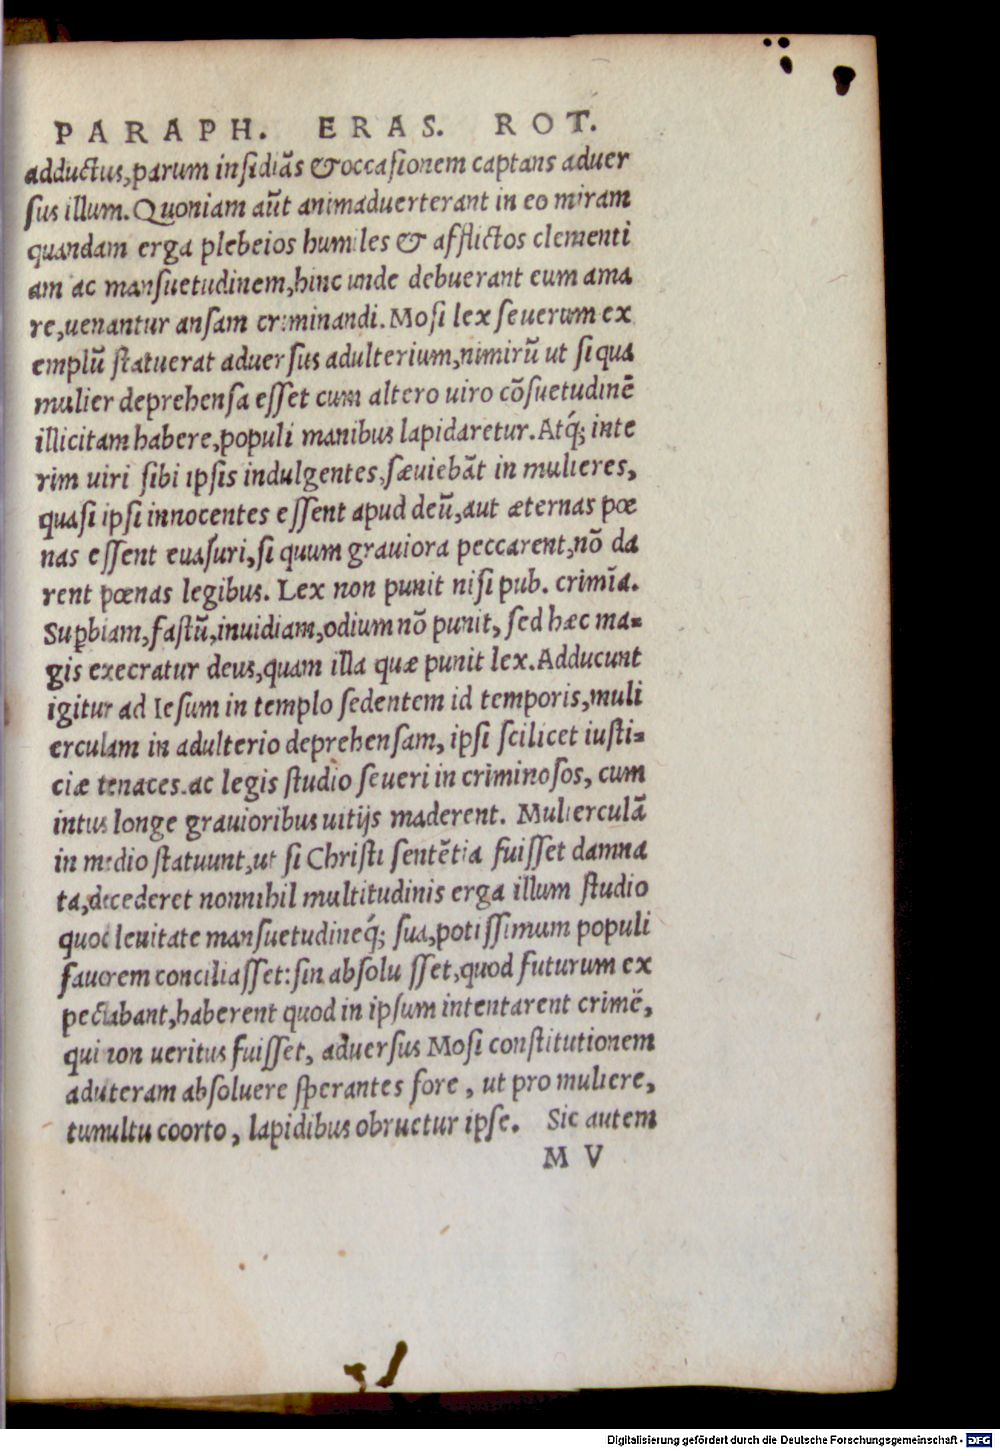 PARAPH. ERAS. ROT.
adductus, parum insidiãs & occasionem captans aduer
sus illum. Quoniam aũt animaduerterant in eo miram
quandam erga plebeios humiles & afflictos clementi
am ac mansuetudinem, hinc unde debuerant eum ama
re, uenantur ansam criminandi. Mosi lex seuerum ex
emplũ statuerat aduersus adulterium, nimirũ ut si qua
mulier deprehensa esset cum altero uiro cõsuetudinẽ
illicitam habere, populi manibus lapidaretur. Atq́; inte
rim uiri sibi ipsis indulgentes, sæuiebãt in mulieres,
quasi ipsi innocentes essent apud deũ, aut æternas pœ
nas essent euasuri, si quum grauiora peccarent, nõ da
rent pœnas legibus. Lex non punit nisi pub. crimĩa.
Suꝑbiam, fastũ, inuidiam, odium nõ punit, sed hæc ma=
gis execratur deus, quam illa quæ punit lex. Adducunt
igitur ad Iesum in templo sedentem id temporis, muli
erculam in adulterio deprehensam, ipsi scilicet iusti=
ciæ tenaces. ac legis studio seueri in criminosos, cum
intus longe grauioribus uitijs maderent. Mulierculã
in medio statuunt, ut si Christi sentẽtia fuisset damna
ta, decederet nonnihil multitudinis erga illum studio
quod leuitate mansuetudineq́; sua, potissimum populi
fauorem conciliasset: sin absolu sset, quod futurum ex
pectabant, haberent quod in ipsum intentarent crimẽ,
qui non ueritus fuisset, aduersus Mosi constitutionem
aduteram absoluere sperantes fore, ut pro muliere,
tumultu coorto, lapidibus obruetur ipse. Sic autem
M V
Digitalisierung gefördert durch die Deutsche Forschungsgemeinschaft - DFG